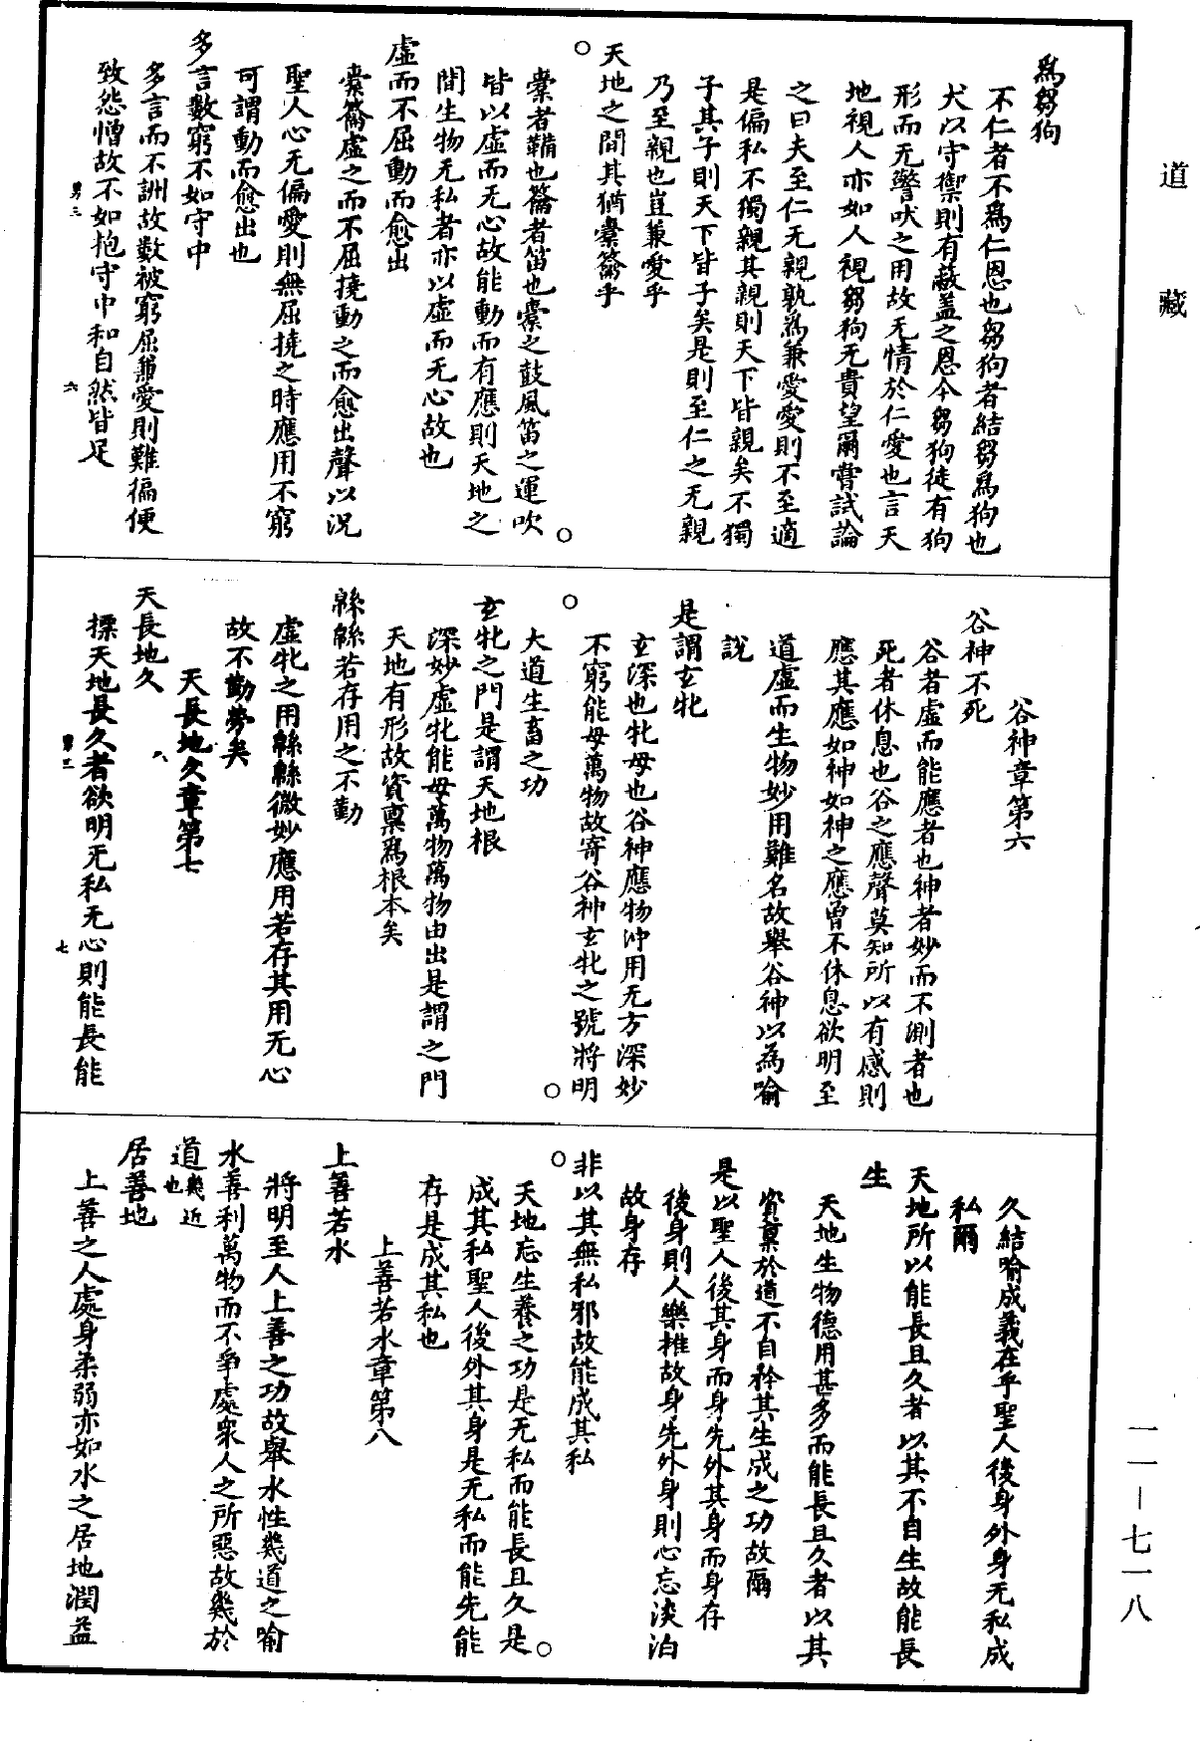 道藏
爲芻狗
不仁者不爲仁恩也芻狗者結芻爲狗也
犬以守禦則有蔽蓋之恩今芻狗徒有狗
形而无警吠之用故无情於仁愛也言天
地視人亦如人視芻狗无責望爾嘗試論
之曰夫至仁无親孰爲兼愛愛則不至適
是偏私不獨親其親則天下皆親矣不獨
子其子則天下皆子矣是則至仁之无親
乃至親也豈兼愛乎
天地之間其猶橐籥乎
橐者鞴也籥者笛也橐之鼓風笛之運吹
皆以虛而无心故能動而有應則天地之
間生物无私者亦以虛而无心故也
虛而不屈動而愈出
橐籥虛之而不屈撓動之而愈出聲以況
聖人心无偏愛則無屈撓之時應用不窮
可謂動而愈出也
多言數窮不如守中
多言而不詶故數被窮屈兼愛則難徧便
致怨憎故不如抱守中和自然皆足
男三 六
谷神章第六
谷神不死
谷者虛而能應者也神者妙而不測者也
死者休息也谷之應聲莫知所以有感則
應其應如神如神之應曾不休息欲明至
道虛而生物妙用難名故舉谷神以為喻
說
是謂玄牝
玄深也牝母也谷神應物沖用无方深妙
不窮能母萬物故寄谷神玄牝之號將明
大道生畜之功
玄牝之門是謂天地根
深妙虛牝能母萬物萬物由出是謂之門
天地有形故資禀爲根本矣
緜緜若存用之不勤
虛牝之用緜緜微妙應用若存其用无心
故不勤勞矣
天長地久章第七
天長地久
摽天地長久者欲明无私无心則能長能
男三 七
久結喻成義在乎聖人後身外身无私成
私爾
天地所以能長且久者以其不自生故能長
生
天地生物德用甚多而能長且久者以其
資禀於道不自矜其生成之功故爾
是以聖人後其身而身先外其身而身存
後身則人樂推故身先外身則心忘淡泊
故身存
非以其無私邪故能成其私
天地忘生養之功是无私而能長且久是
成其私聖人後外其身是无私而能先能
存是成其私也
上善若水章第八
上善若水
將明至人上善之功故舉水性幾道之喻
水善利萬物而不爭處衆人之所惡故幾於
道幾近也
居善地
上善之人處身柔弱亦如水之居地潤益
一一－七一八